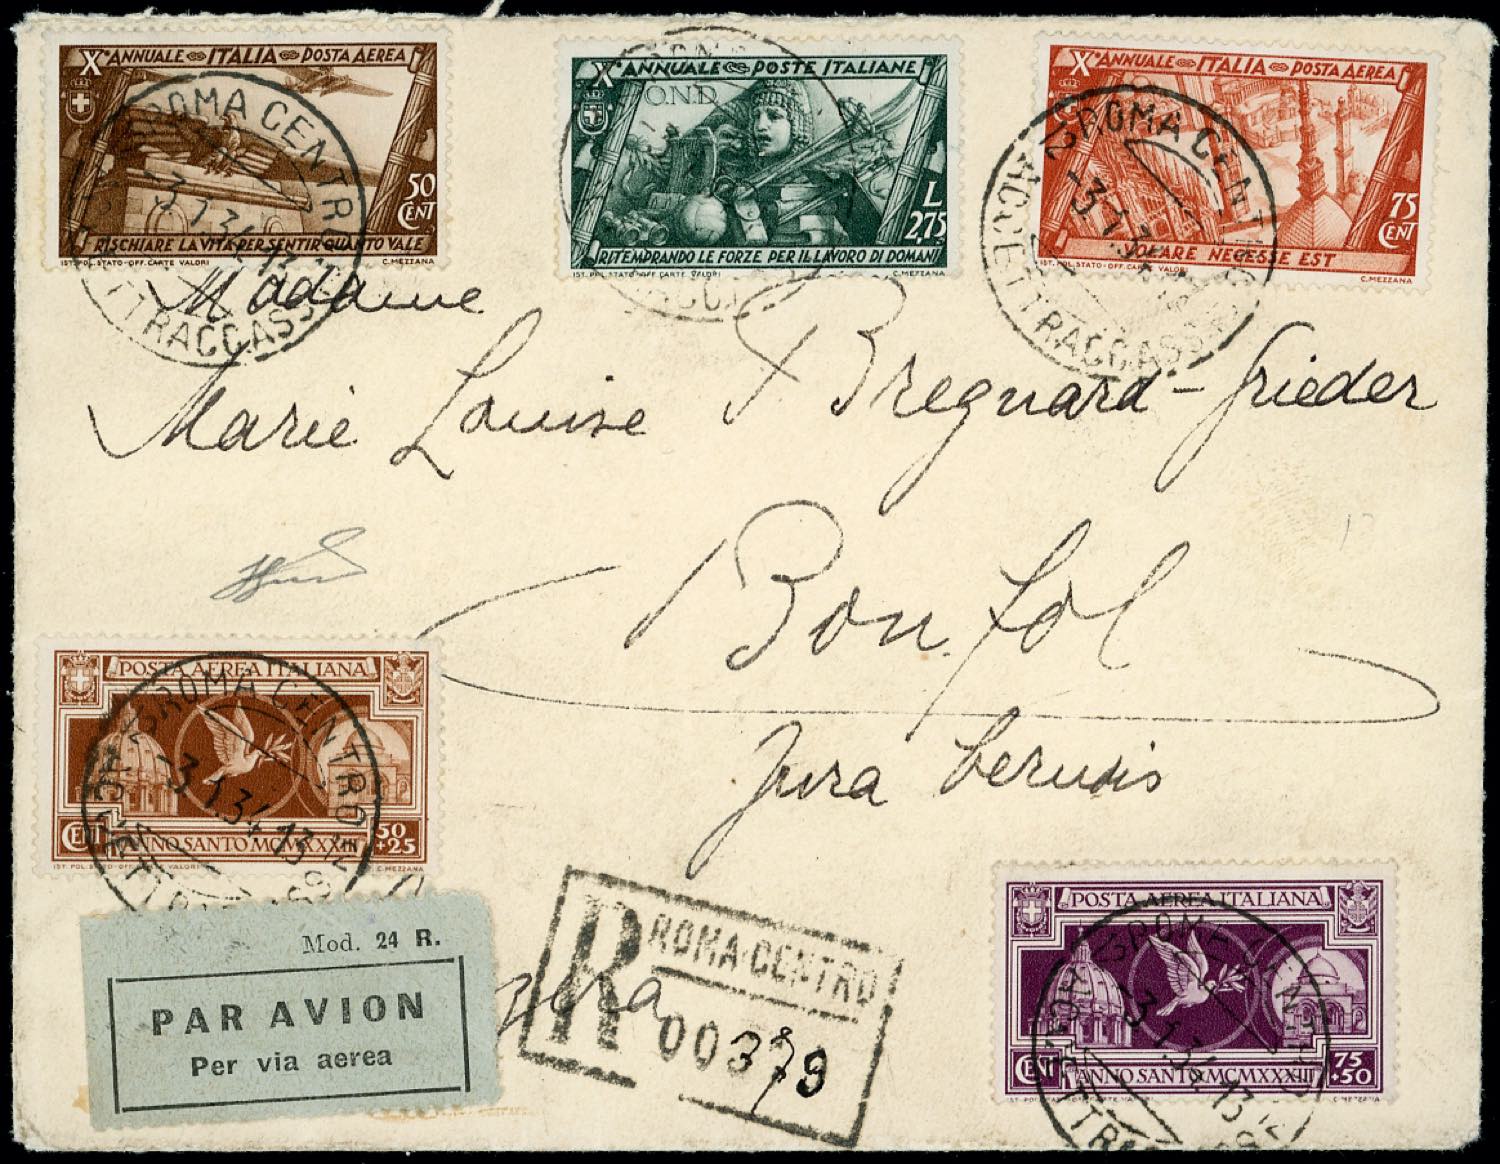 Xº ANNUALE ITALIA POSTA AEREA
50 CENT
RISCHIARE LA VITA PER SENTIR QUANTO VALE
IST. POL. STATO - OFF. CARTE VALORI C. MEZZANA
Xº ANNUALE POSTE ITALIANE
O.N.D.
L 2,75
RITEMPRANDO LE FORZE PER IL LAVORO DI DOMANI
IST. POL. STATO - OFF. CARTE VALORI C. MEZZANA
Xº ANNUALE ITALIA POSTA AEREA
75 CENT
VOLARE NECESSE EST
IST. POL. STATO - OFF. CARTE VALORI C. MEZZANA
ROMA CENTRO
-3.1.34.13
ROMA CENTRO
-3.1.34.13
Madame
Marie Louise Breguard-Grieder
Bonfol
Jura bernois
POSTA AEREA ITALIANA
CENT 50 +25
ANNO SANTO MCMXXXIII
IST. POL. STATO - OFF. CARTE VALORI C. MEZZANA
ROMA CENTRO
-3.1.34.13
Mod. 24 R.
PAR AVION
Per via aerea
R ROMA CENTRO
00379
POSTA AEREA ITALIANA
CENT 75 +50
ANNO SANTO MCMXXXIII
C. MEZZANA
ROMA CENTRO
-3.1.34.13